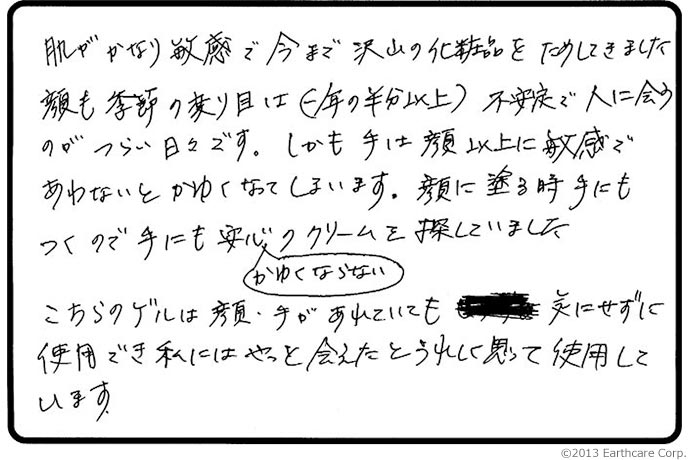 肌がかなり敏感で今まで沢山の化粧品をためしてきました
顔も季節の変り目は(一年の半分以上) 不安定で人に会う
のがつらい日々です。しかも手は顔以上に敏感で
あわないとかゆくなってしまいます。顔に塗る時手にも
つくので手にも安心のクリームを探していました
かゆくならない
こちらのゲルは顔・手があれていても 気にせずに
使用でき私にはやっと会えたとうれしく思って使用して
います。
©2013 Earthcare Corp.